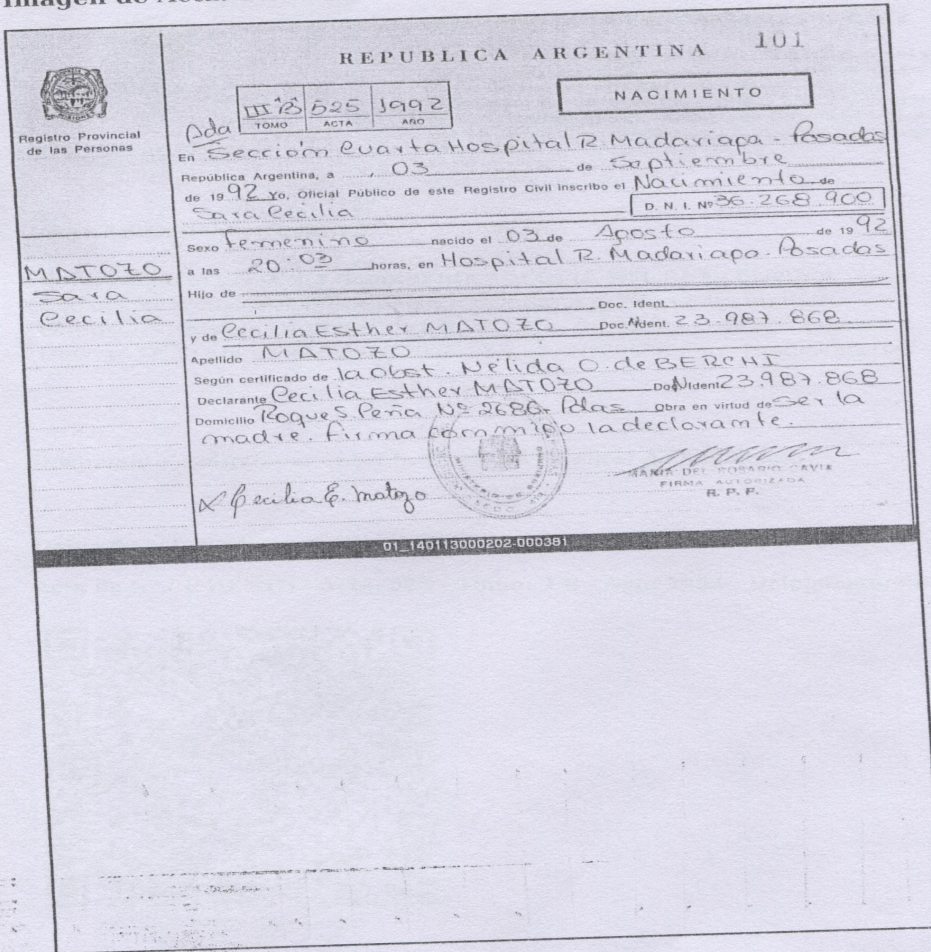 Imagen de Acta
REPUBLICA ARGENTINA 101
Registro Provincial
de las Personas
III B 525 1992
TOMO ACTA AÑO
NACIMIENTO
Ada
En Sección Cuarta Hospital R. Madariaga - Posadas
República Argentina, a 03 de Septiembre
de 1992 Yo, Oficial Público de este Registro Civil inscribo el Nacimiento de
Sara Cecilia D. N. I. Nº 36.268.900
Sexo Femenino nacido el 03 de Agosto de 1992
a las 20:03 horas, en Hospital R. Madariaga. Posadas
MATOZO
Sara
Cecilia
Hijo de
Doc. Ident.
y de Cecilia Esther MATOZO Doc. Ident. 23.987.868
Apellido MATOZO
Según certificado de la Obst. Nélida O. de BERCHI
Declarante Cecilia Esther MATOZO Doc. Ident 23.987.868
Domicilio Roque S. Peña Nº 2686- Pdas Obra en virtud de Ser la
madre. Firma conmigo la declarante.
X Cecilia E. Matozo
MARIA DEL ROSARIO GAVIX
FIRMA AUTORIZADA
R. P. P.
01_140113000202-000381